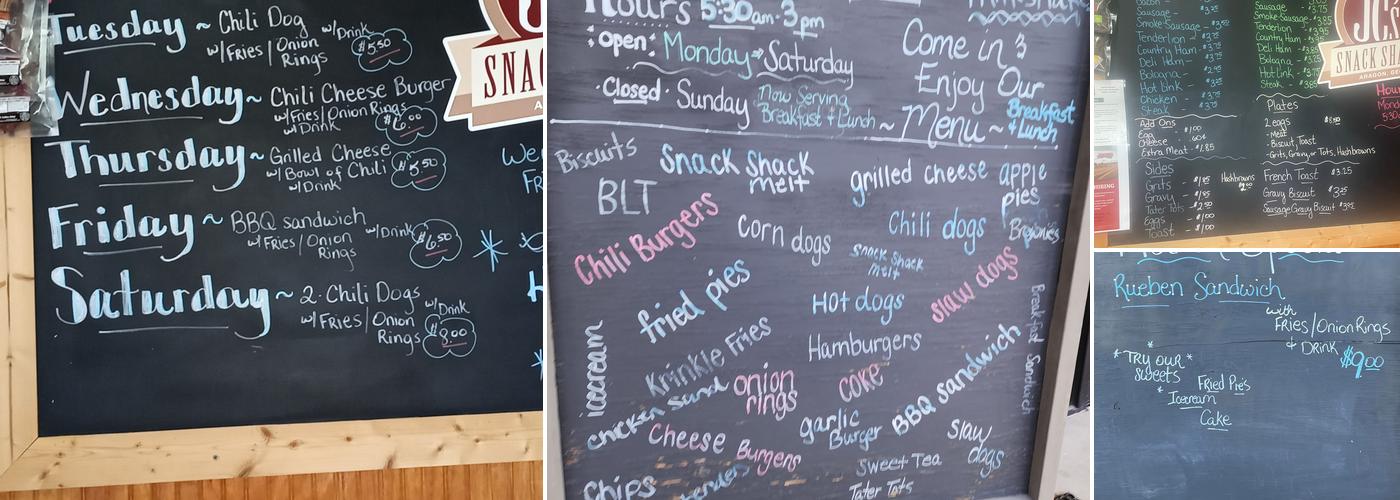 Tuesday ~ Chili Dog w/Drink
w/Fries/Onion
Rings
$5.50
Wednesday ~ Chili Cheese Burger
w/Fries/Onion Rings
w/Drink
$6.00
Thursday ~ Grilled Cheese
w/Bowl of Chili
w/Drink
$5.50
Friday ~ BBQ sandwich
w/Fries/Onion w/Drink
Rings
$6.50
Saturday ~ 2-Chili Dogs
w/Drink
w/Fries/Onion
Rings
$8.00
Hours 5:30am-3pm
Open: Monday - Saturday
Closed · Sunday
Now Serving
Breakfast & Lunch
Come in &
Enjoy Our
~ Menu ~
Breakfast
& Lunch
Biscuits
Snack Shack
melt
grilled cheese
apple
pies
BLT
Chili Burgers
Corn dogs
Chili dogs
Brownies
Snack Shack
melt
fried pies
Hot dogs
slaw dogs
Breakfast Sandwich
icecream
Krinkle Fries
Hamburgers
chicken Sand
onion
rings
coke
BBQ sandwich
garlic
Burger
Cheese Burgers
Slaw
dogs
Sweet Tea
Chips
Tater Tots
Sausage -
Smoke-Sausage -
Tenderlion
Country Ham -
Deli Ham -
Bologna -
Hot link -
Chicken
Steak
Add Ons
Egg - $1.00
Cheese 60¢
Extra Meat - $1.85
Sides
Grits - $1.85
Gravy - $1.85
Tater Tots - $2.50
Eggs - $1.00
Toast - $1.00
Hashbrowns
Sausage
Smoke-Sausage -
Tenderlion
Country Ham
Deli Ham -
Bologna -
Hot link -
Steak -
Plates
2 eggs
- Meat
- Biscuit, Toast
- Grits, Gravy, or Tots, Hashbrowns
French Toast $3.25
Gravy Biscuit
Sausage Gravy Biscuit
JC's
SNACK SHA
Rueben Sandwich
with
Fries/Onion Rings
& Drink
$9.00
* TRY OUR *
Sweets
Fried Pie's
* Icecream
Cake